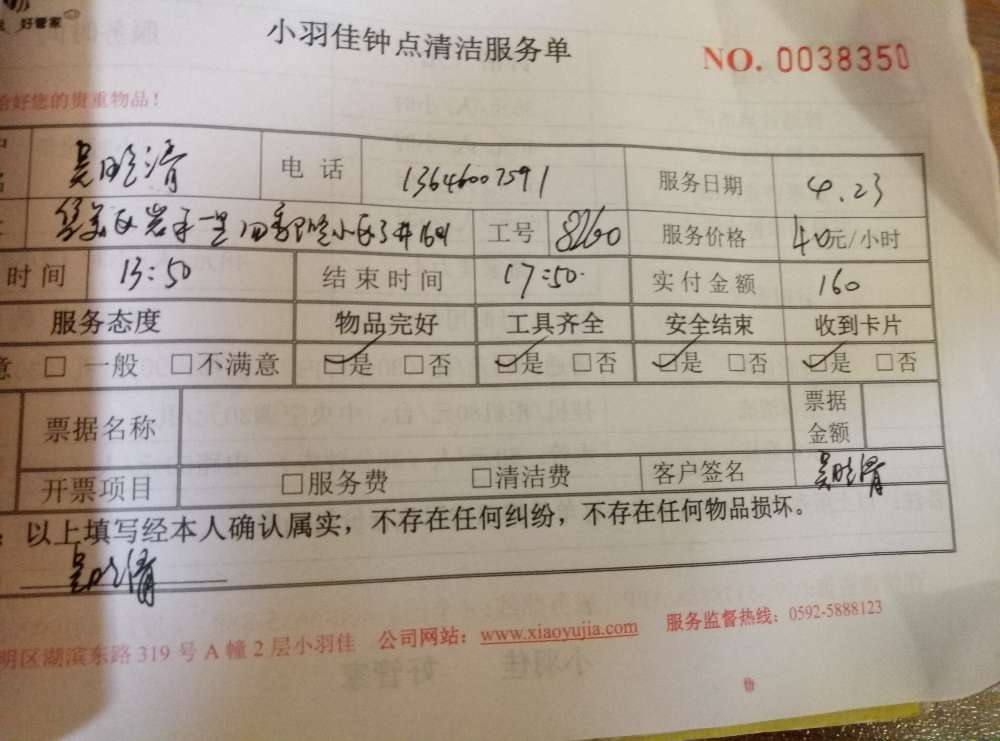 好管家
小羽佳钟点清洁服务单
NO. 0038350
好您的贵重物品！
电话 13646007591 服务日期 4.23
工号 8260 服务价格 40元/小时
时间 13:50 结束时间 17:50 实付金额 160
服务态度 物品完好 工具齐全 安全结束 收到卡片
意 □ 一般 □不满意 ☑是 □否 ☑是 □否 ☑是 □否 ☑是 □否
票据名称 票据金额
开票项目 □服务费 □清洁费 客户签名
以上填写经本人确认属实，不存在任何纠纷，不存在任何物品损坏。
明区湖滨东路 319 号 A 幢 2 层小羽佳 公司网站：www.xiaoyujia.com 服务监督热线：0592-5888123